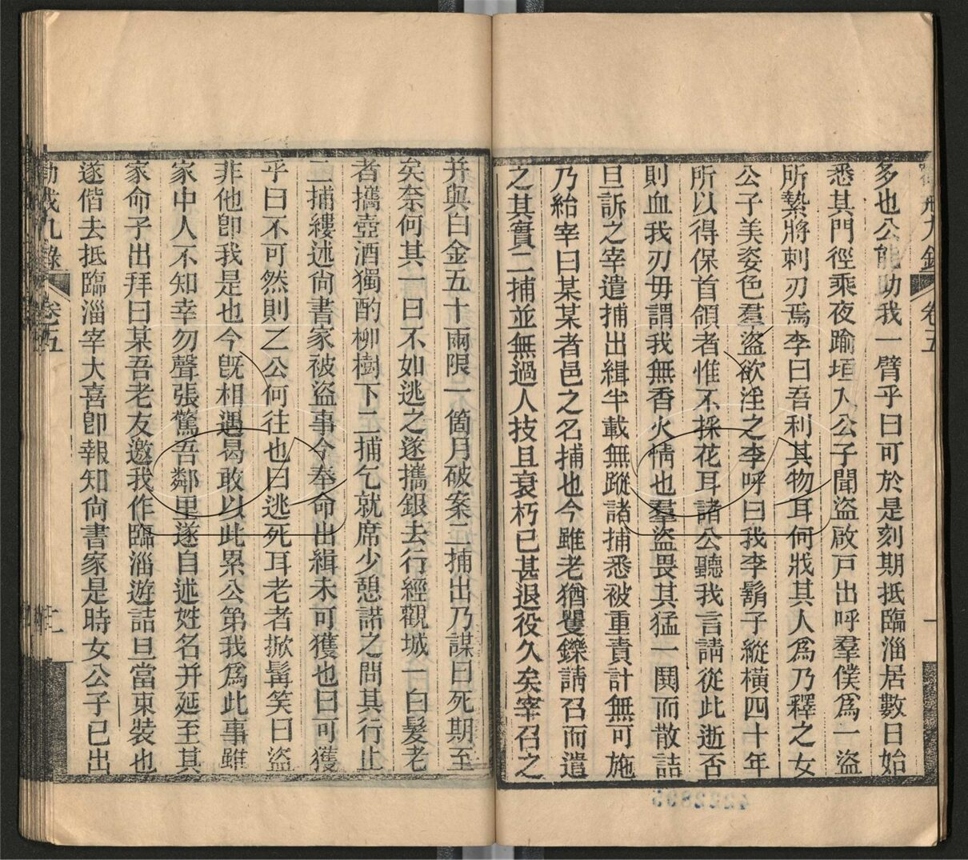 多也公能助我一臂乎曰可於是刻期抵臨淄居數日始
悉其門徑乘夜踰垣入公子聞盜啟戶出呼羣僕為一盜
所縶將刺刃焉李曰吾利其物耳何戕其人為乃釋之女
公子美姿色羣盜欲淫之李呼曰我李鬍子縱橫四十年
所以得保首領者惟不採花耳諸公聽我言請從此逝否
則血我刃毋謂我無香火情也羣盜畏其猛一鬨而散詰
旦訴之宰遣捕出緝半載無蹤諸捕悉被重責計無可施
乃紿宰曰某某者邑之名捕也今雖老猶矍鑠請召而遣
之其實二捕並無過人技且衰朽已甚退役久矣宰召之
并與白金五十兩限一箇月破案二捕出乃謀曰死期至
矣奈何其一曰不如逃之遂攜銀去行經觀城一白髮老
者攜壺酒獨酌柳樹下二捕乞就席少憩諾之問其行止
二捕縷述尚書家被盜事今奉命出緝未可獲也曰可獲
乎曰不可然則乙公何往也曰逃死耳老者掀髯笑曰盜
非他卽我是也今旣相遇曷敢以此累公第我為此事雖
家中人不知幸勿聲張驚吾鄰里遂自述姓名并延至其
家命子出拜曰某吾老友邀我作臨淄遊詰旦當束裝也
遂偕去抵臨淄宰大喜卽報知尚書家是時女公子已出
勸戒九錄
卷五
4222895